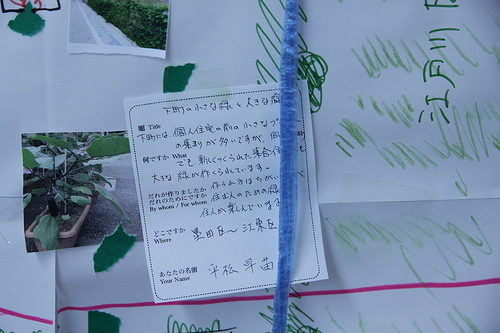 江戸川
下町の小さな緑と大きな
題 Title
下町には、個人住宅の前の小さな
の集まりが多いですが、
何ですか What
でも新しくつくられた集合住
大きな緑が作られています。
だれが作りましたか
だれのためにですか
By whom / For whom
作られ方はちがい
住む人のための緑
住人が楽しんでいます
どこですか
Where
墨田区〜江東区
あなたの名前
Your Name
平松 早苗